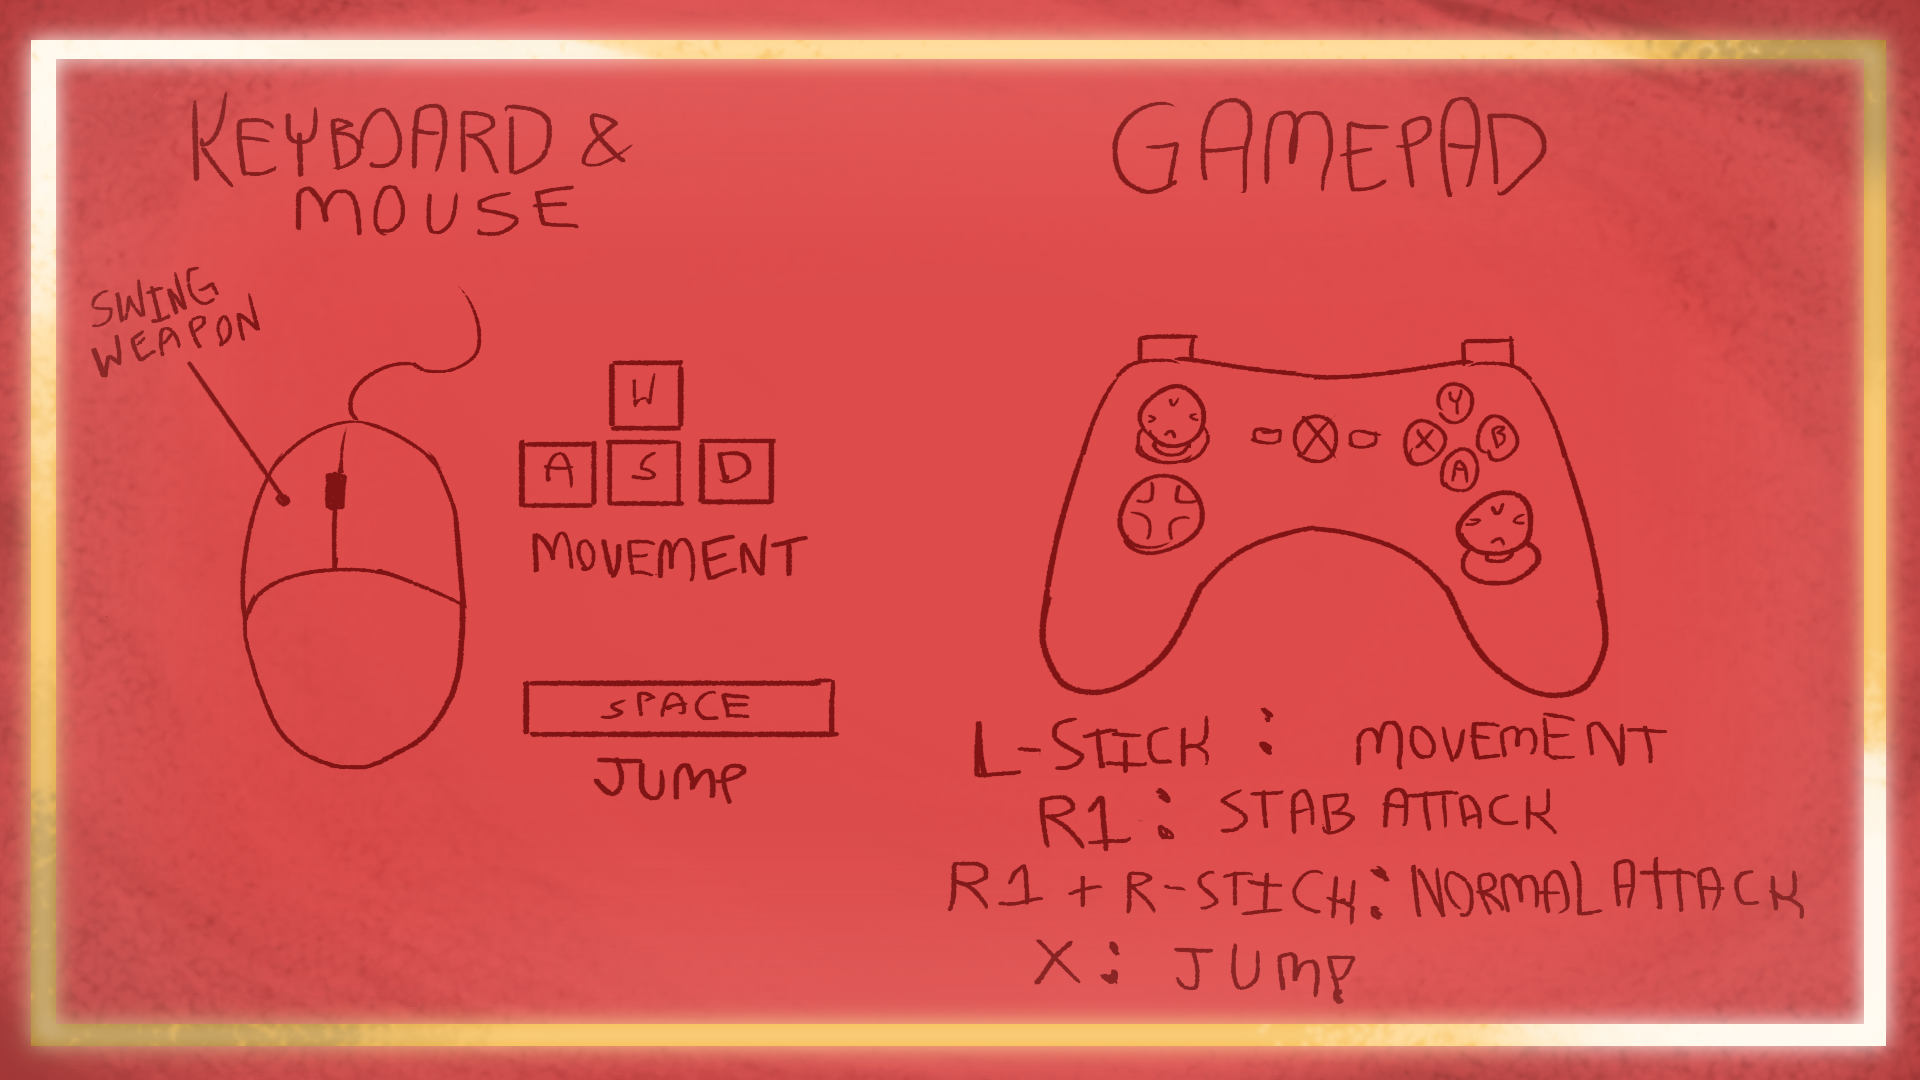 KEYBOARD &
MOUSE
SWING
WEAPON
W
A S D
MOVEMENT
SPACE
JUMP
GAMEPAD
X
Y
X B
A
L-STICK : MOVEMENT
R1 : STAB ATTACK
R1 + R-STICK : NORMAL ATTACK
X : JUMP